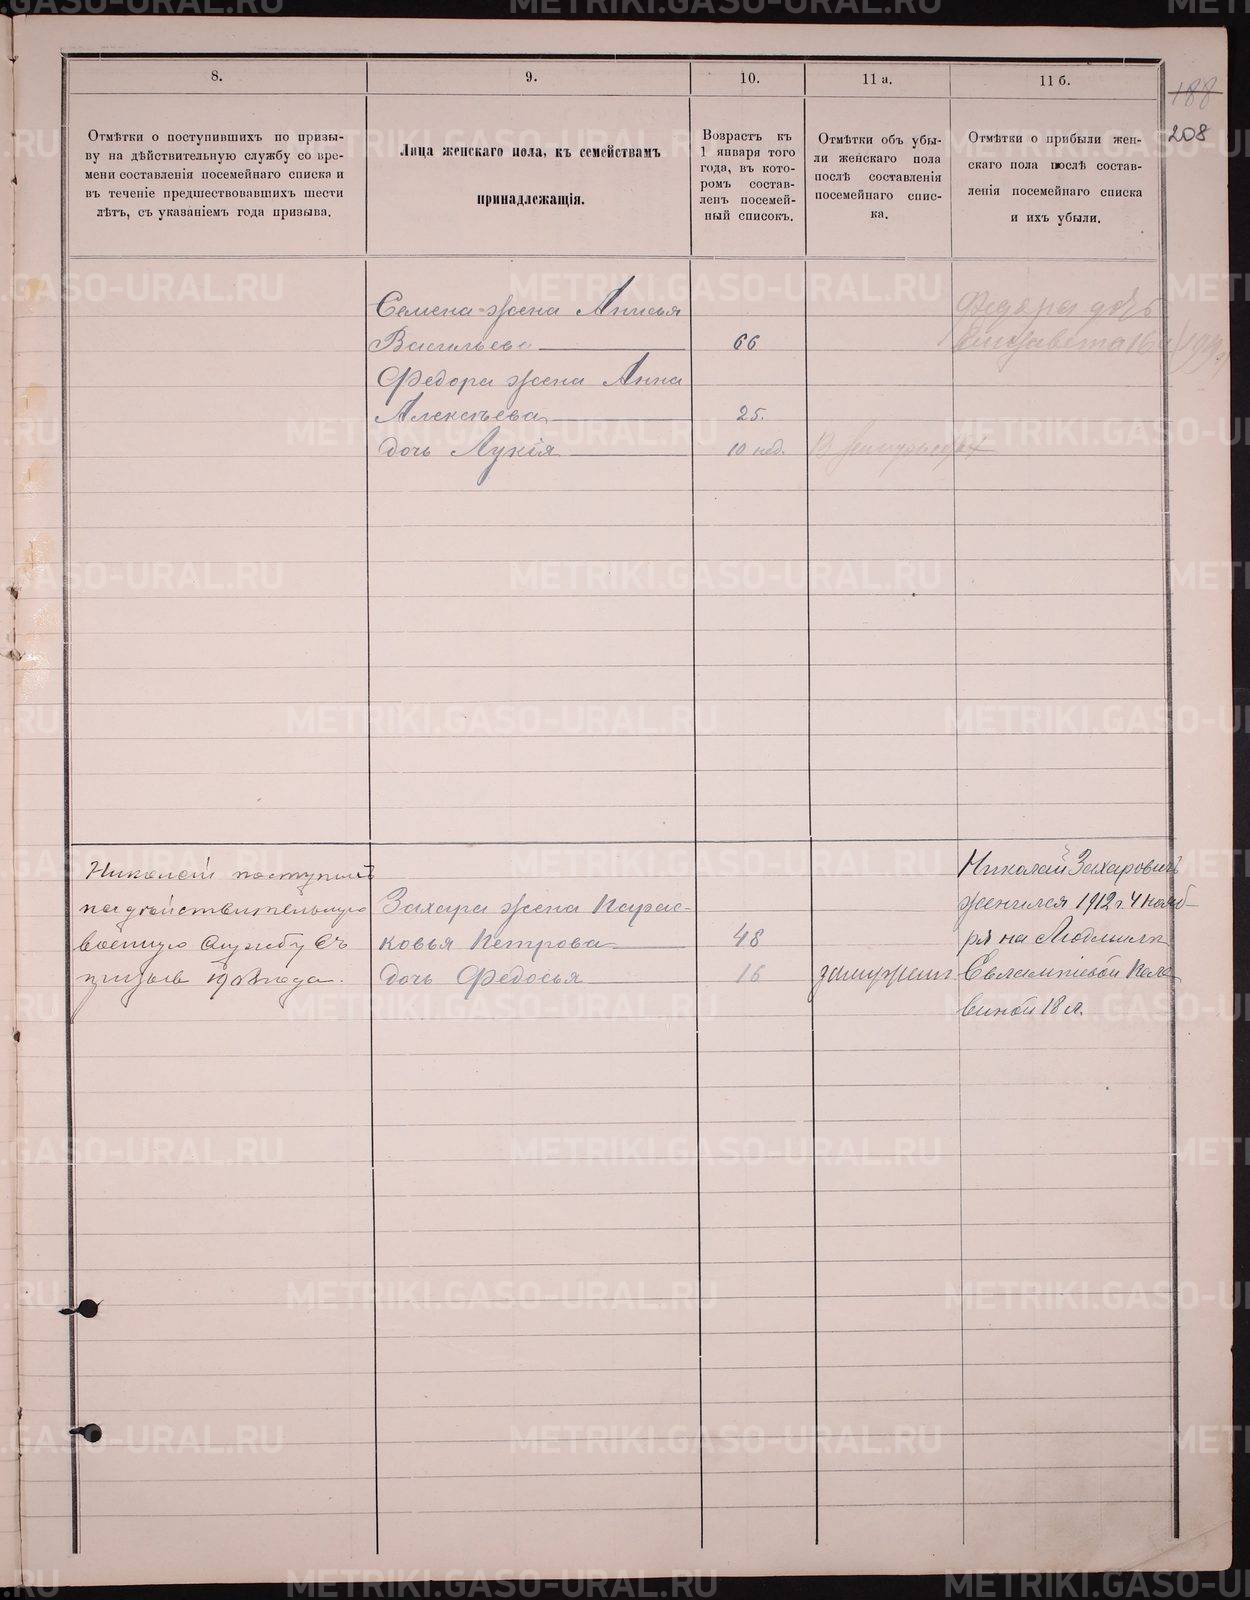 8.
9.
10.
11 а.
11 б.
188
208
Отмѣтки о поступившихъ по призы-
ву на дѣйствительную службу со вре-
мени составленія посемейнаго списка и
въ теченіе предшествовавшихъ шести
лѣтъ, съ указаніемъ года призыва.
Лица женскаго пола, къ семействамъ
принадлежащія.
Возрастъ къ
1 января того
года, въ кото-
ромъ состав-
ленъ посемей-
ный списокъ.
Отмѣтки объ убы-
ли женскаго пола
послѣ составленія
посемейнаго спис-
ка.
Отмѣтки о прибыли жен-
скаго пола послѣ состав-
ленія посемейнаго списка
и ихъ убыли.
Семена жена Анисья
Васильева 66
Федора жена Анна
Алексѣева 25.
дочь Лукія 10 нед.
Федора дочь
Елизавета 16
Николай поступилъ
на дѣйствительную
военную службу въ
призывъ 1908 года.
Захара жена Парас-
ковья Петрова 48
дочь Федосья 16
замужем
Николай Захаровичъ
женился 1912 г. 4 нояб-
ря на Людмиле
Евлампіевой
18 л.
METRIKI.GASO-URAL.RU